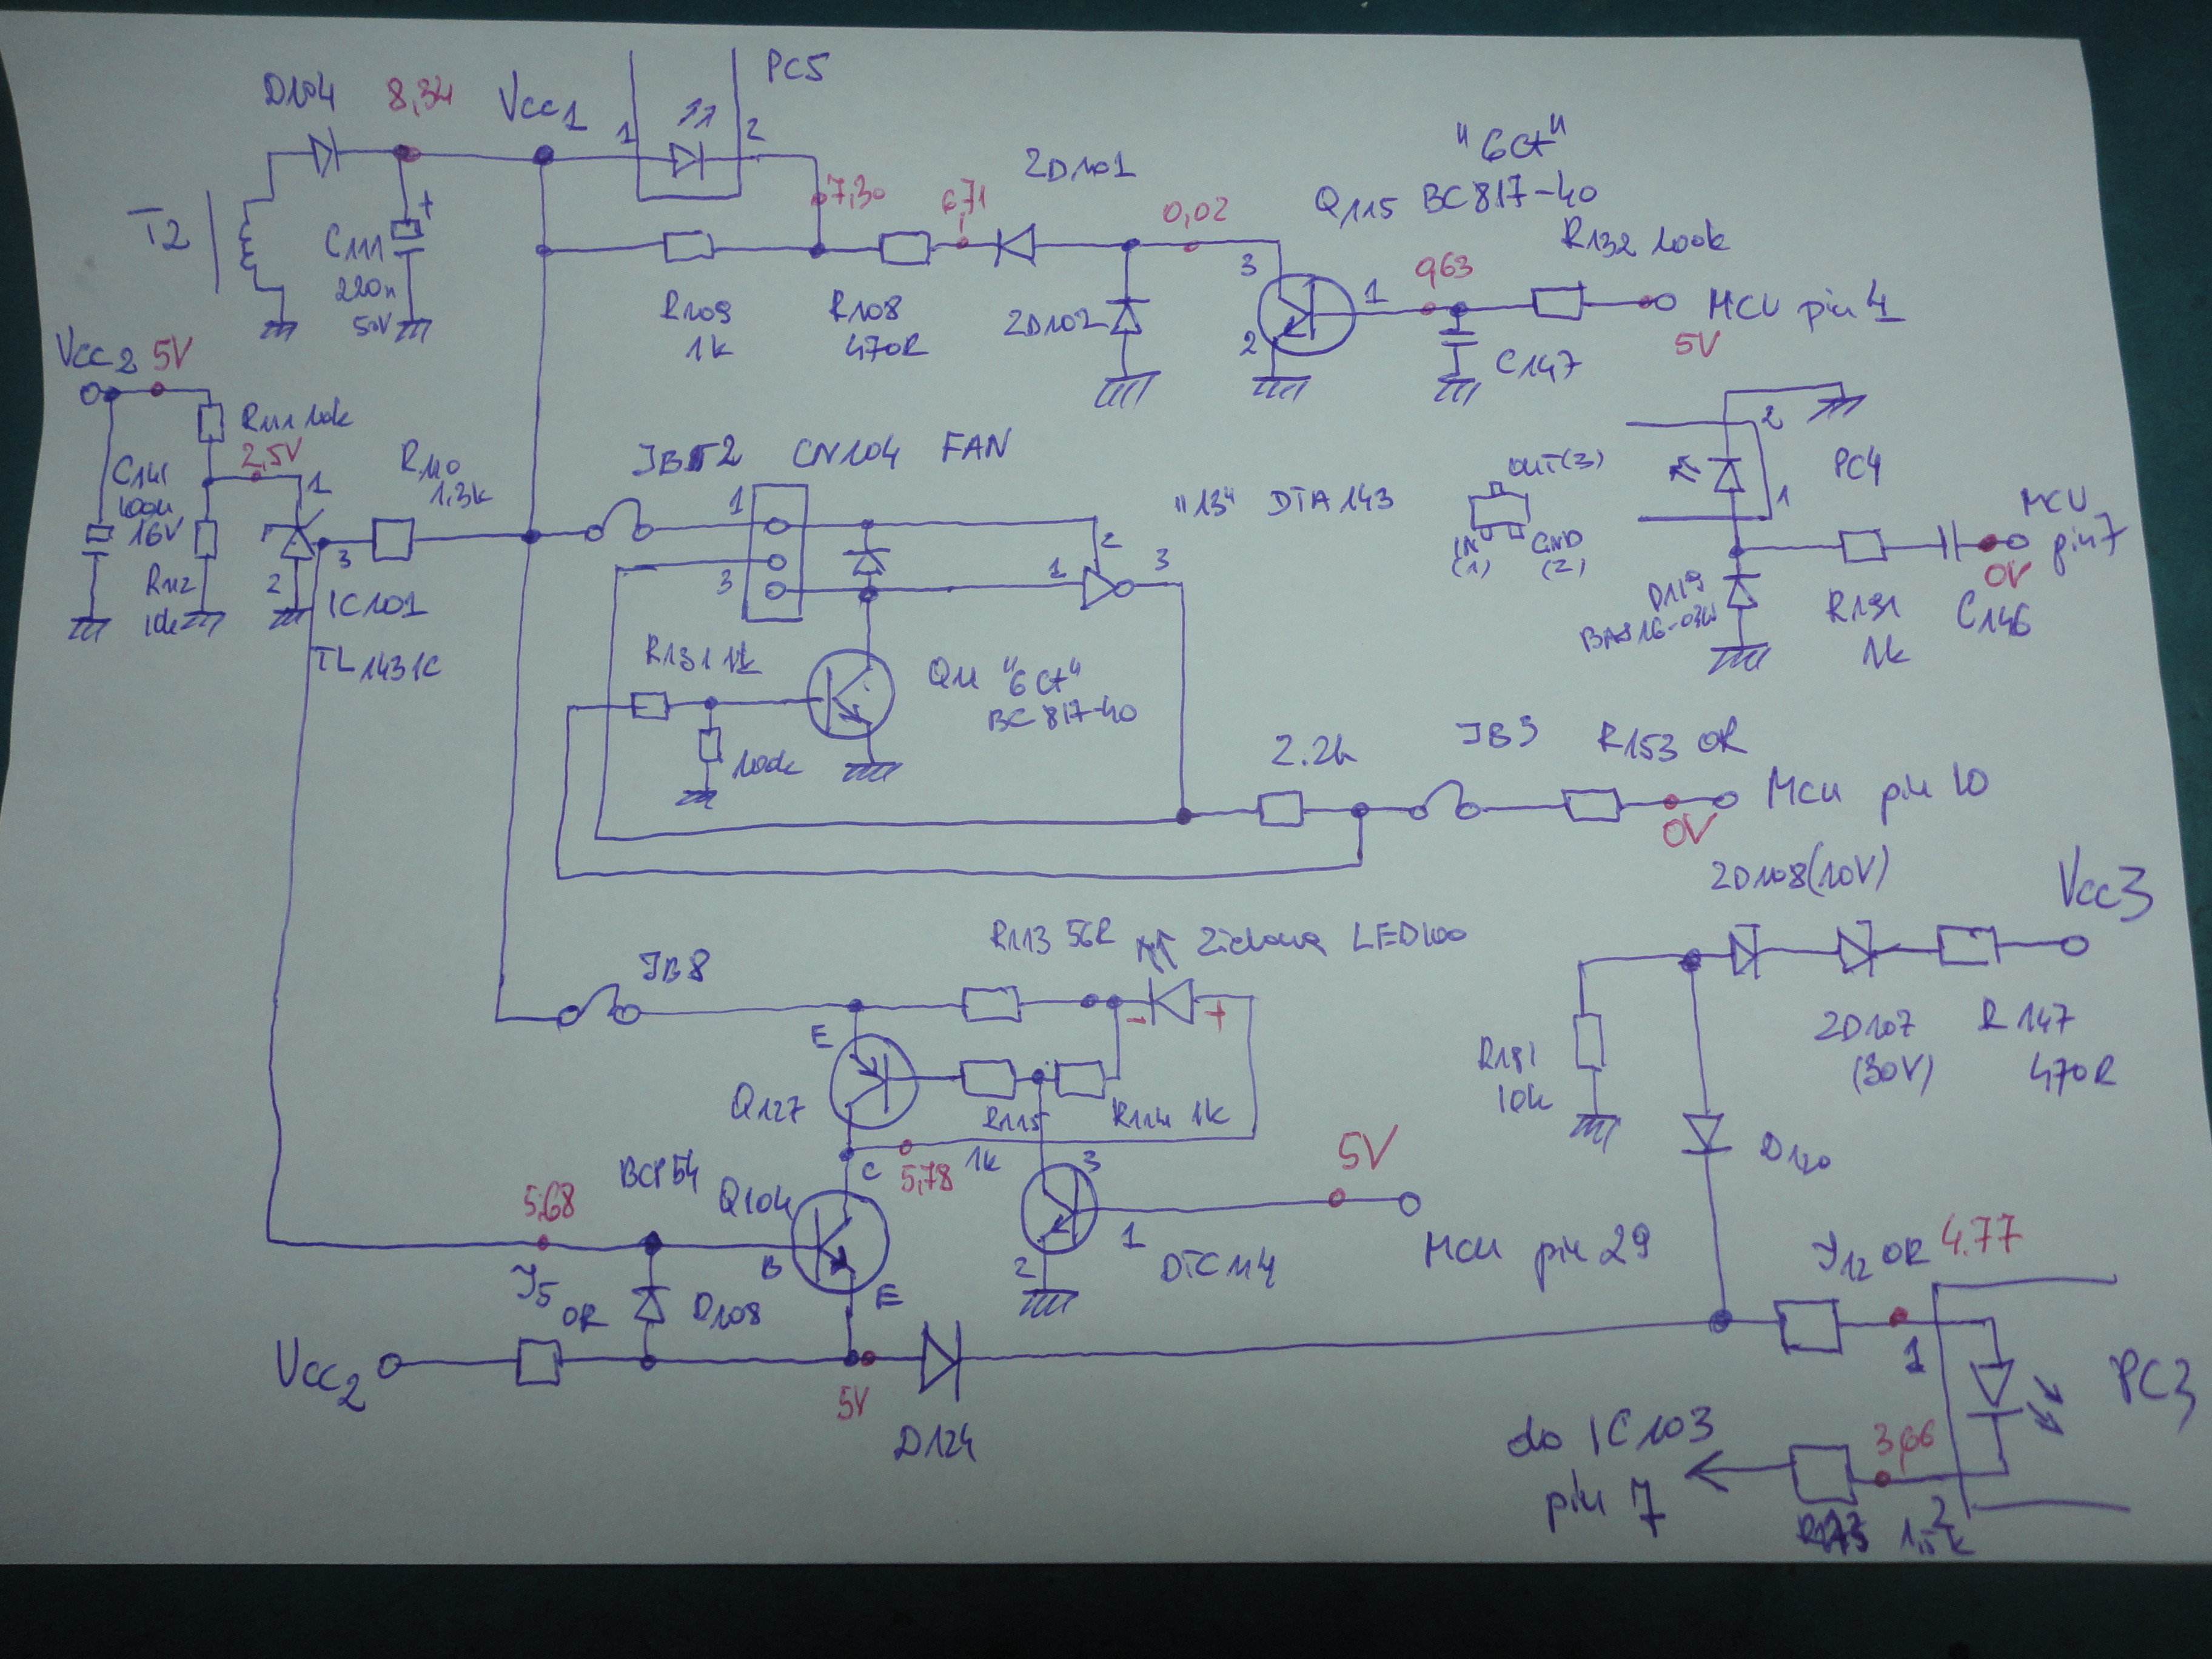 D104
8,34
Vcc1
1
2
PC5
T2
C111
220u
50V
+
7,30
6,71
ZD101
0,02
"6Ct"
Q115 BC817-40
R132 100k
R109
1k
R108
470R
ZD102
3
2
0,63
1
C147
MCU pin 1
5V
Vcc2
5V
R111 10k
2,5V
1
C141
100u
16V
R112
10k
2
3
IC101
TL1431C
R110
1.3k
JB52
CN104
FAN
1
3
2
1
3
"13" DTA143
OUT(3)
IN
(1)
GND
(2)
2
PC4
1
MCU
pin 7
0V
D119
BAS16-03W
R191
1k
C146
R131 1k
100k
Q11 "6Ct"
BC817-40
2.2k
JB3
R153 0R
MCU pin 10
0V
ZD108(10V)
Vcc3
ZD107
(30V)
R147
470R
R181
10k
D120
JB8
R113 56R
Zielona LED100
-
+
E
Q127
C
R115
1k
R114 1k
5,78
3
1
2
DTC114
5V
MCU pin 29
5,68
BCP54
Q104
B
E
J5
0R
D108
Vcc2
5V
D124
J12 0R
4.77
1
PC3
do IC103
pin 7
3,66
2
R173 1,5k